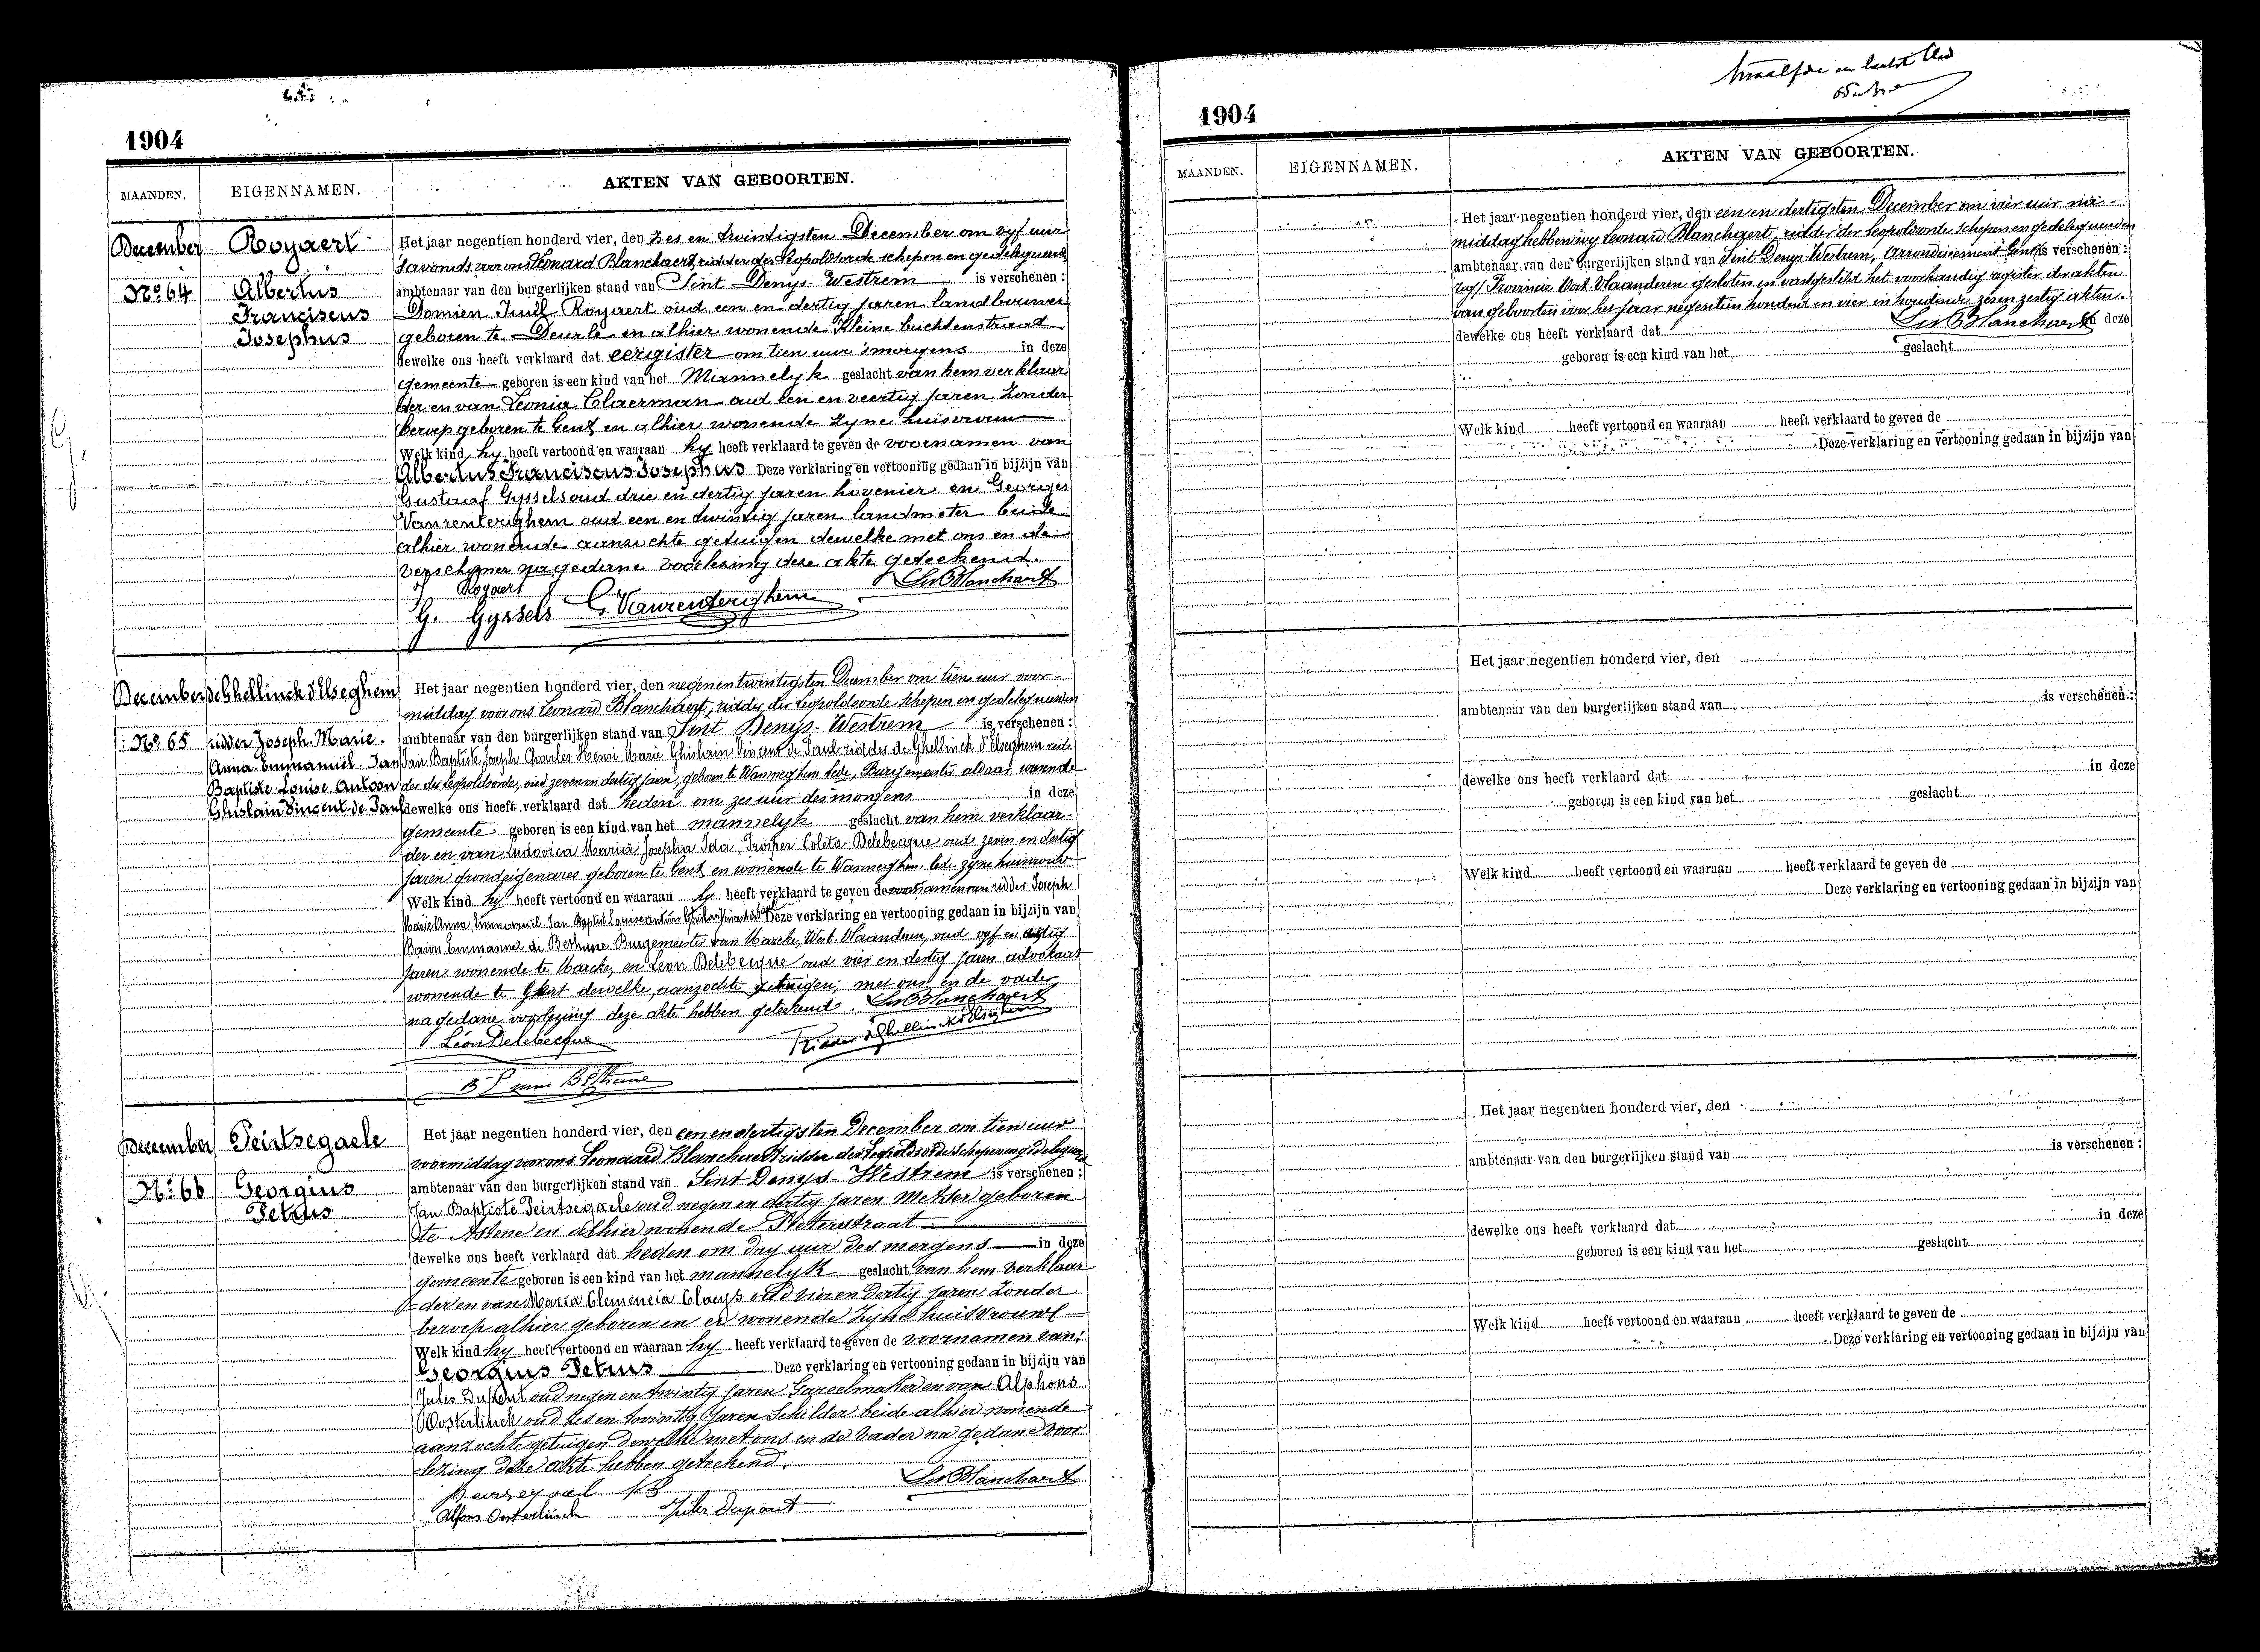 1904
MAANDEN. EIGENNAMEN. AKTEN VAN GEBOORTEN.
December Royaert
No 64 Albertus
Franciscus
Josephus
Het jaar negentien honderd vier, den zes en twintigsten December om vyf uur
's avonds voor ons Leonard Blanchaert, ridder der Leopoldsorde schepen en gedelegueerde
ambtenaar van den burgerlijken stand van Sint Denys-Westrem is verschenen :
Domien Royaert oud een en dertig jaren landbouwer
geboren te Deurle en alhier wonende Kleine buchtenstraat
dewelke ons heeft verklaard dat eergister om tien uur 's morgens in deze
gemeente geboren is een kind van het Mannelyk geslacht van hem verklaar
der en van Leonia Claerman oud een en veertig jaren Zonder
beroep geboren te Gent en alhier wonende Zyne huisvrouw
Welk kind hy heeft vertoond en waaraan hy heeft verklaard te geven de voornamen van
Albertus Franciscus Josephus Deze verklaring en vertooning gedaan in bijzijn van
Gustaaf Gyssels oud drie en dertig jaren hovenier en Georges
Vanrenterghem oud een en twintig jaren landmeter beide
alhier wonende aanzochte getuigen dewelke met ons en de
verschener na gedane voorlezing deze akte geteekend.
Royaert LdBlanchaert
G. Gyssels G. Vanrenterghem
December de Ghellinck d'Elseghem
No 65 ridder Joseph Marie
Anna Emmanuël Jan
Baptiste Louise Antoon
Ghislain Vincent de Paul
Het jaar negentien honderd vier, den negen en twintigsten December om tien uur voor-
middag voor ons Leonard Blanchaert, ridder der Leopoldsorde schepen en gedelegueerden
ambtenaar van den burgerlijken stand van Sint Denijs-Westrem is verschenen :
Jan Baptiste Joseph Charles Henri Marie Ghislain Vincent de Paul ridder de Ghellinck d'Elseghem rid-
der der Leopoldsorde, oud zeven en dertig jaren, geboren te Wanneghem Lede, Burgemeester aldaar wonende
dewelke ons heeft verklaard dat heden om zes uur des morgens in deze
gemeente geboren is een kind van het mannelyk geslacht van hem verklaar-
der en van Ludovica Maria Josepha Ida Prosper Coleta Delebecque oud zeven en dertig
jaren grondeigenares geboren te Gent en wonende te Wanneghem lede zyne huisvrouw
Welk kind hy heeft vertoond en waaraan hy heeft verklaard te geven de voornamen van ridder Joseph
Marie Anna Emmanuël Jan Baptist Louise antoon Ghislain Vincent de Paul Deze verklaring en vertooning gedaan in bijzijn van
Baron Emmanuel de Bethune Burgemeester van Marcke, West-Vlaanderen, oud vyf en dertig
jaren wonende te Marcke, en Leon Delebecque oud vier en dertig jaren advokaat
wonende te Gent dewelke, aanzochte getuigen, met ons en de vader
na gedane voorlezing deze akte hebben geteekend. LdBlanchaert
Léon Delebecque Ridder de Ghellinck d'Elseghem
December Peirtsegaele
No 66 Georgius
Petrus
Het jaar negentien honderd vier, den een en dertigsten December om tien uur
voormiddag voor ons Leonard Blanchaert ridder der Leopoldsorde schepen en gedelegueerd
ambtenaar van den burgerlijken stand van Sint Denys-Westrem is verschenen :
Jan Baptiste Peirtsegaele oud negen en dertig jaren Metser geboren
te Astene en alhier wonende Pleterstraat
dewelke ons heeft verklaard dat heden om dry uur des morgens in deze
gemeente geboren is een kind van het mannelyk geslacht van hem verklaar
der en van Maria Clemencia Claeys oud vier en dertig jaren Zonder
beroep alhier geboren en er wonende zijne huisvrouwe
Welk kind hy heeft vertoond en waaraan hy heeft verklaard te geven de voornamen van:
Georgius Petrus Deze verklaring en vertooning gedaan in bijzijn van
Jules Dupont oud negen en twintig jaren Gareelmaker en van Alphons
Oosterlinck oud zes en twintig jaren Schilder beide alhier wonende
aanzochte getuigen dewelke met ons en de vader na gedane voor
lezing deze akte hebben geteekend.
LdBlanchaert
Alfons Oosterlinck Jules Dupont
1904
MAANDEN. EIGENNAMEN. AKTEN VAN GEBOORTEN.
Het jaar negentien honderd vier, den een en dertigsten December om vier uur na-
middag hebben wy Leonard Blanchaert, ridder der Leopoldsorde schepen en gedelegueerden
ambtenaar van den burgerlijken stand van Sint Denys-Westrem, Arrondissement Gent is verschenen :
Provincie Oost-Vlaanderen gesloten en vastgesteld het voorhandig register der akten
van geboorten voor het jaar negentien honderd en vier inhoudende zes en zestig akten.
dewelke ons heeft verklaard dat LdBlanchaert in deze
geboren is een kind van het geslacht
Welk kind heeft vertoond en waaraan heeft verklaard te geven de
Deze verklaring en vertooning gedaan in bijzijn van
Het jaar negentien honderd vier, den
ambtenaar van den burgerlijken stand van is verschenen :
dewelke ons heeft verklaard dat in deze
geboren is een kind van het geslacht
Welk kind heeft vertoond en waaraan heeft verklaard te geven de
Deze verklaring en vertooning gedaan in bijzijn van
Het jaar negentien honderd vier, den
ambtenaar van den burgerlijken stand van is verschenen :
dewelke ons heeft verklaard dat in deze
geboren is een kind van het geslacht
Welk kind heeft vertoond en waaraan heeft verklaard te geven de
Deze verklaring en vertooning gedaan in bijzijn van